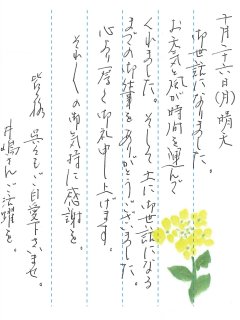 十月二十八日(月)晴天
御世話になりました。
お天気と風が時間を運んで
くれました。そして土に御世話になる
までの御仕事をありがとうございました。
心より厚く御礼申し上げます。
それぞれの御気持に感謝を。
皆々様 呉々もご自愛下さいませ。
井嶋さんご活躍を。